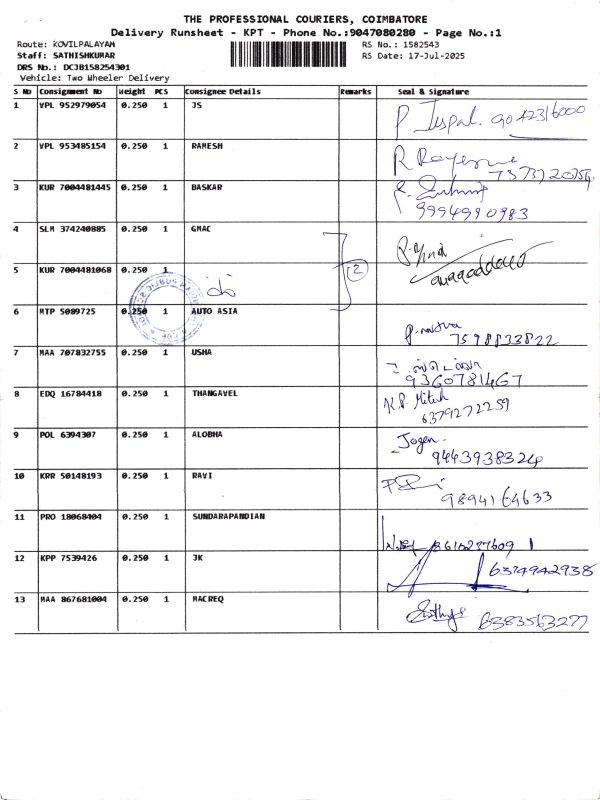 THE PROFESSIONAL COURIERS, COIMBATORE
Delivery Runsheet - KPT - Phone No.:9047080280 - Page No.:1
Route: KOVILPALAYAM RS No.: 1582543
Staff: SATHISHKUMAR RS Date: 17-Jul-2025
DRS No.: DCJB158254301
Vehicle: Two Wheeler Delivery
S No Consignment No Weight PCS Consignee Details Remarks Seal & Signature
1 VPL 952979054 0.250 1 JS P. Juspal. 9042316000
2 VPL 953485154 0.250 1 RAMESH
3 KUR 7004481445 0.250 1 BASKAR 9994990983
4 SLM 374240885 0.250 1 GMAC
5 KUR 7004481068 0.250 1 2
6 MTP 5089725 0.250 1 AUTO ASIA 7598833822
7 MAA 707832755 0.250 1 USHA 9360781467
8 EDQ 16784418 0.250 1 THANGAVEL K.P. Mitesh 6379272259
9 POL 6394307 0.250 1 ALOBHA Jogen 9443938324
10 KRR 50148193 0.250 1 RAVI 9894164633
11 PRO 18068404 0.250 1 SUNDARAPANDIAN
12 KPP 7539426 0.250 1 JK 6374942938
13 MAA 867681004 0.250 1 MACREQ 8383563277